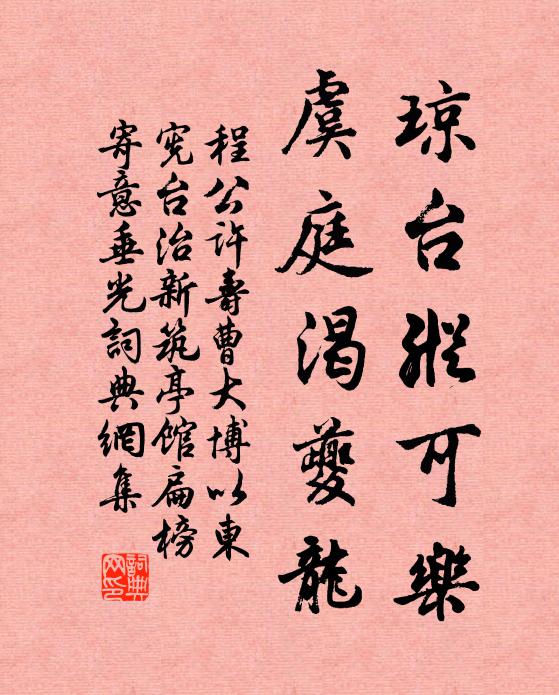 琼台縱可樂
虞庭渴夔龍
程公许壽曹大博以東
宪台治新筑亭館扁榜
寄意垂光詞典網集
詞典
网印